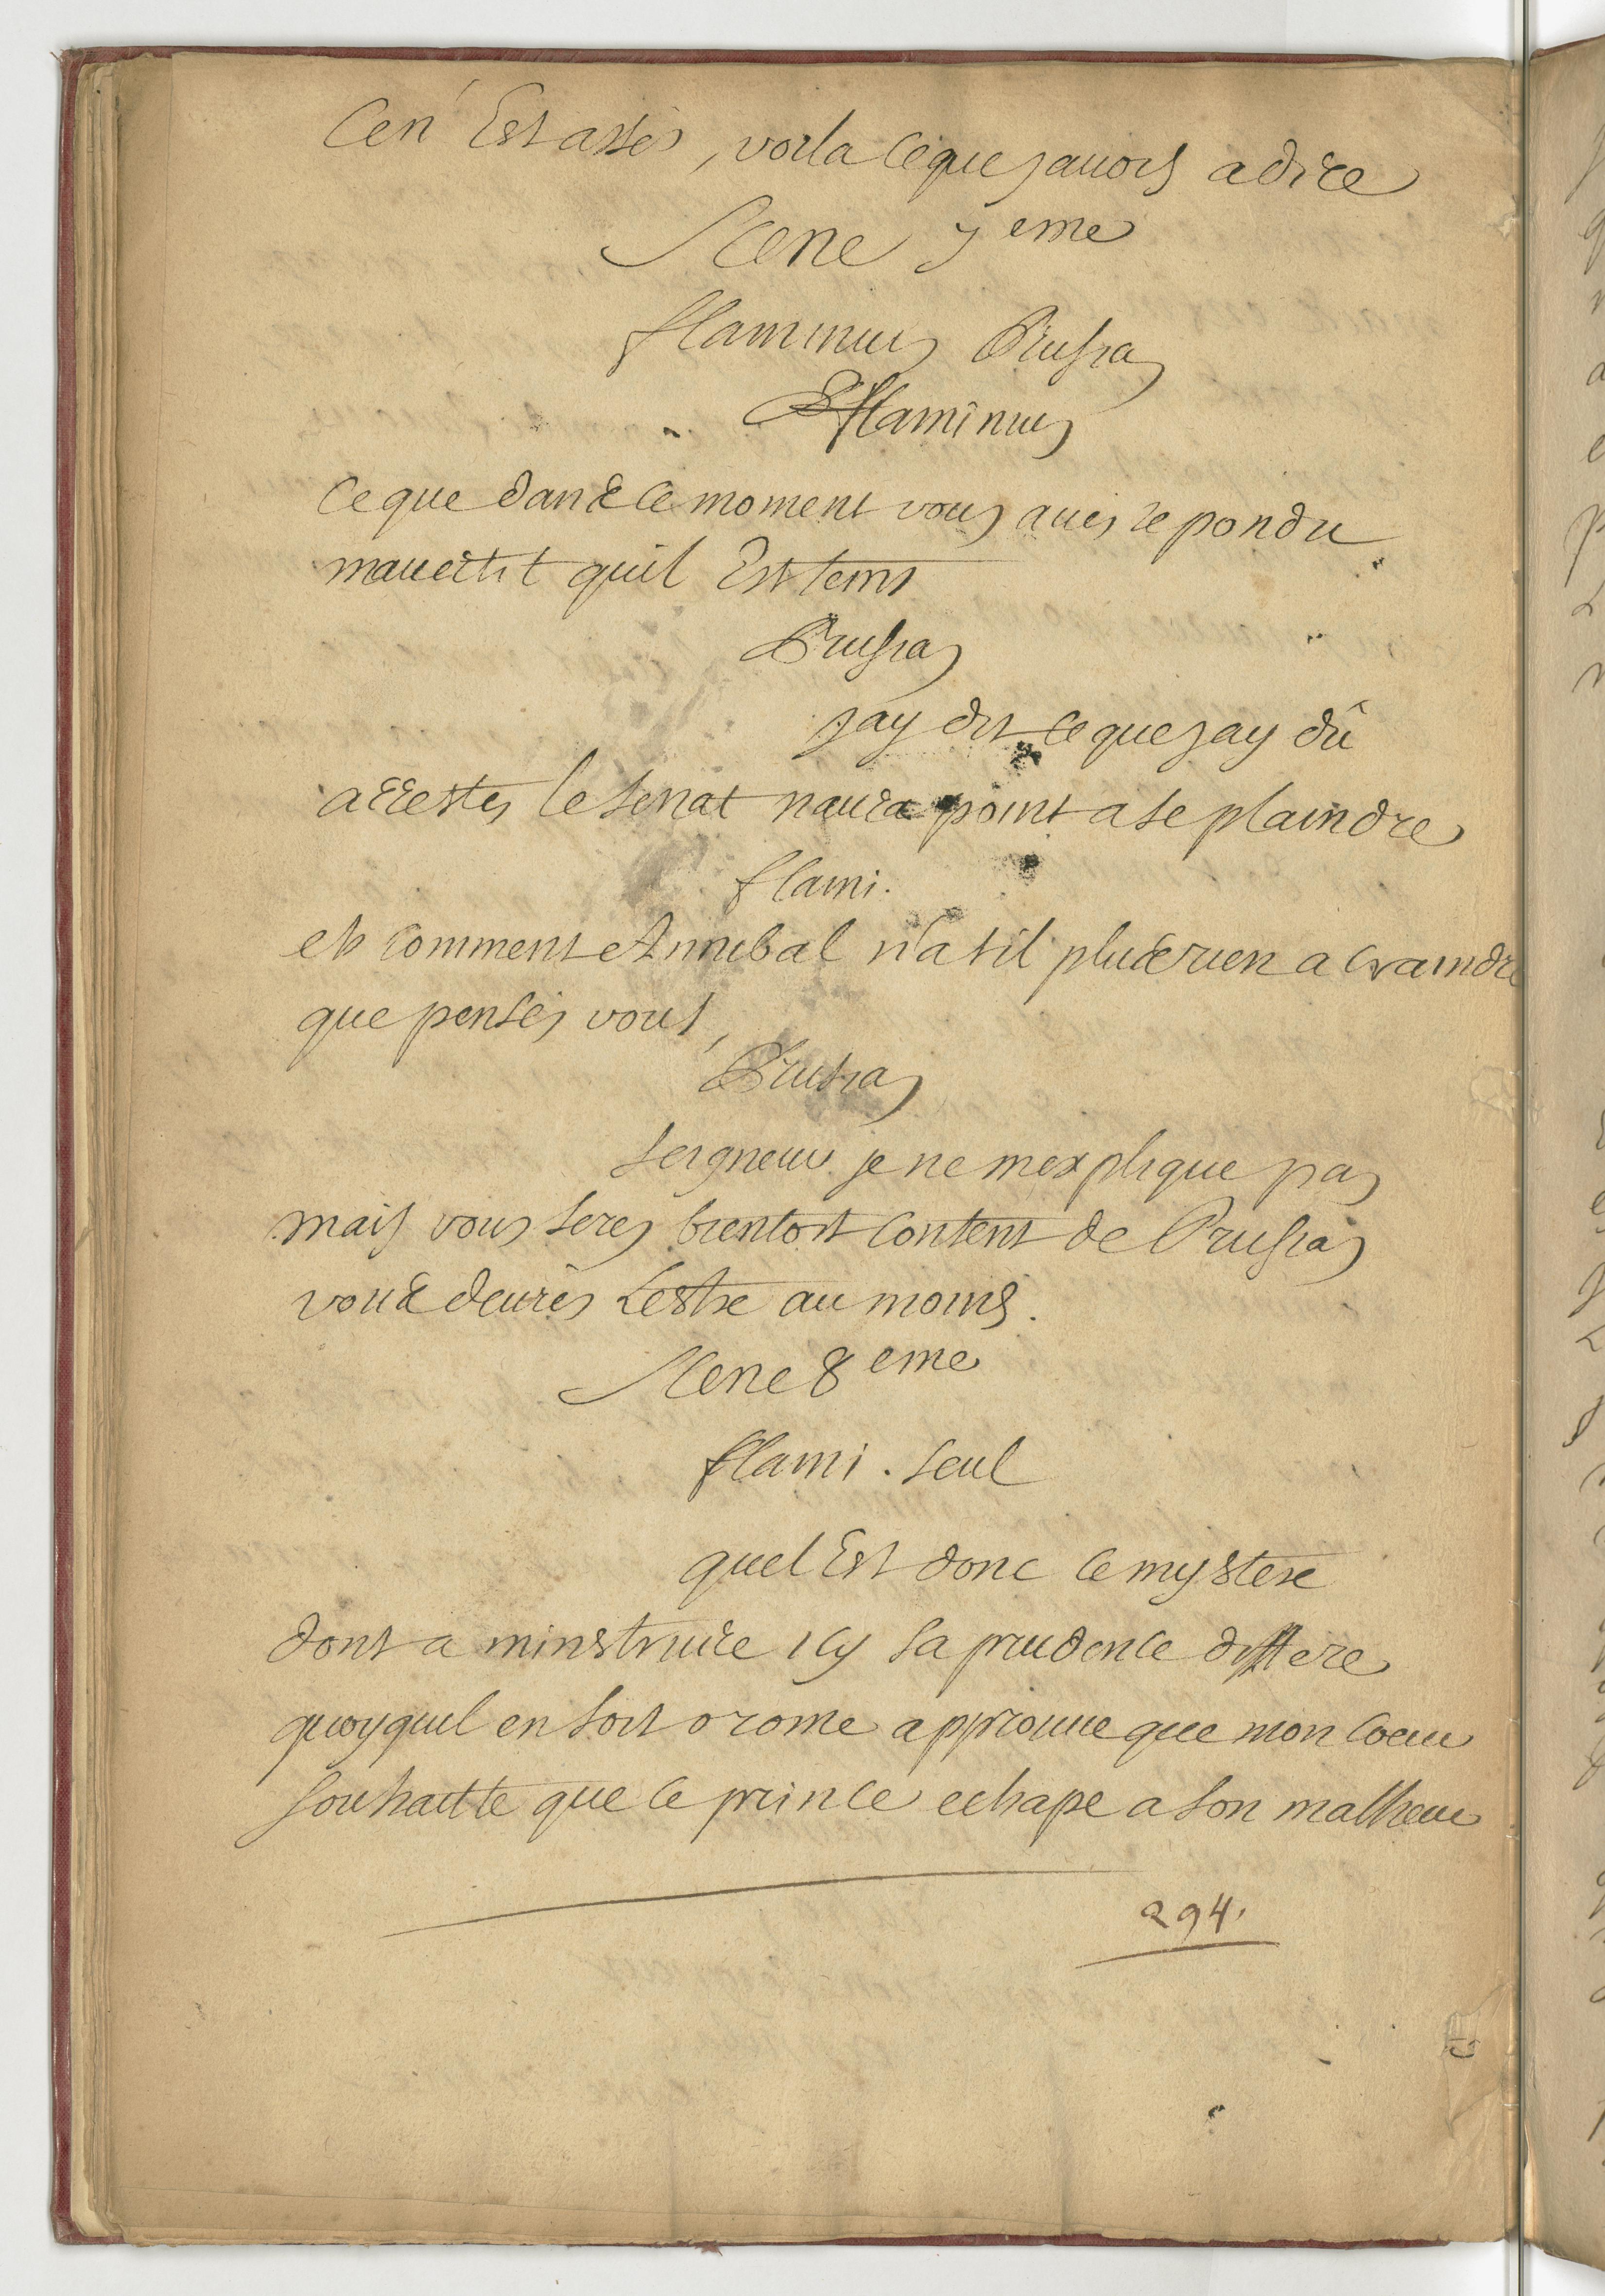 Cen' Est assés, voila ceque javois a dire
Scene 7 eme
flaminius Prusias
flaminius
Ceque dans ce moment vous aués repondu
mauertit quil Est tems
Prusias
jay dit ceque jay dû
arrestes le senat naura point a se plaindre
flami.
et comment Annibal n'a til plus rien a craindre
que pensés vous,
Prusias
seigneur je ne mexplique pas
mais vous seres bientost content de Prusias
vous deuriés Lestre au moins.
Scene 8 eme
flami. seul
quel Est donc ce mystere
dont a minstruire icy sa prudence differe
quoyquil en soit o rome approuue que mon coeur
souhaitte que ce prince echape a son malheur
294.